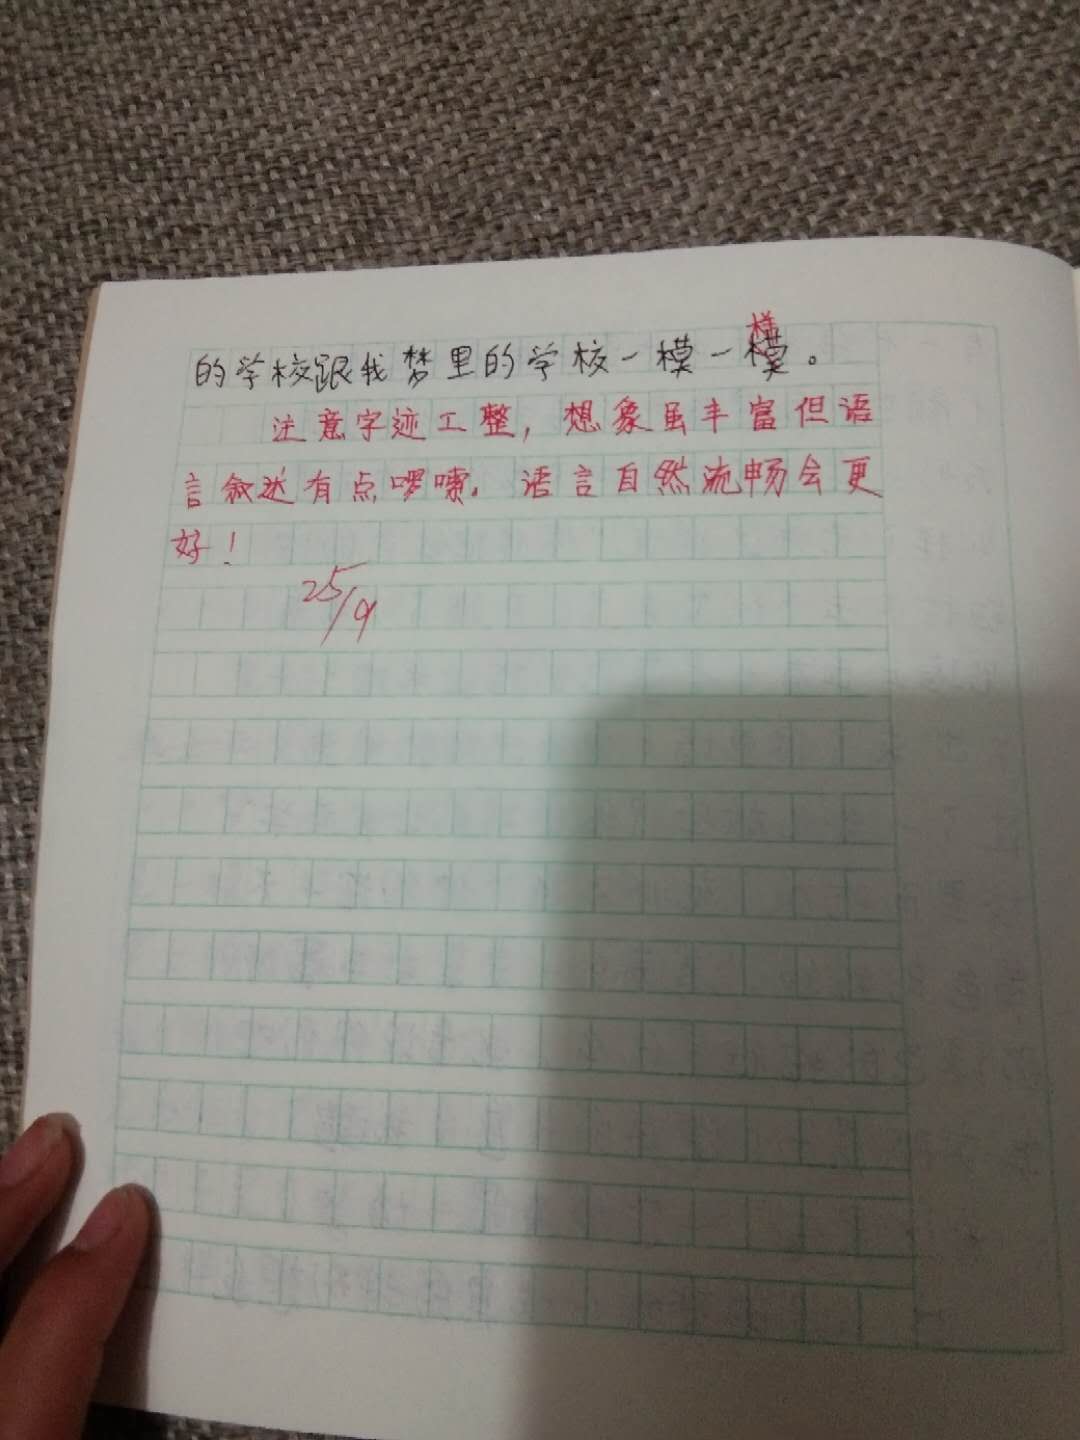 样
的学校跟我梦里的学校一模一模。
注意字迹工整，想象虽丰富但语
言叙述有点啰嗦。语言自然流畅会更
好！
25/9